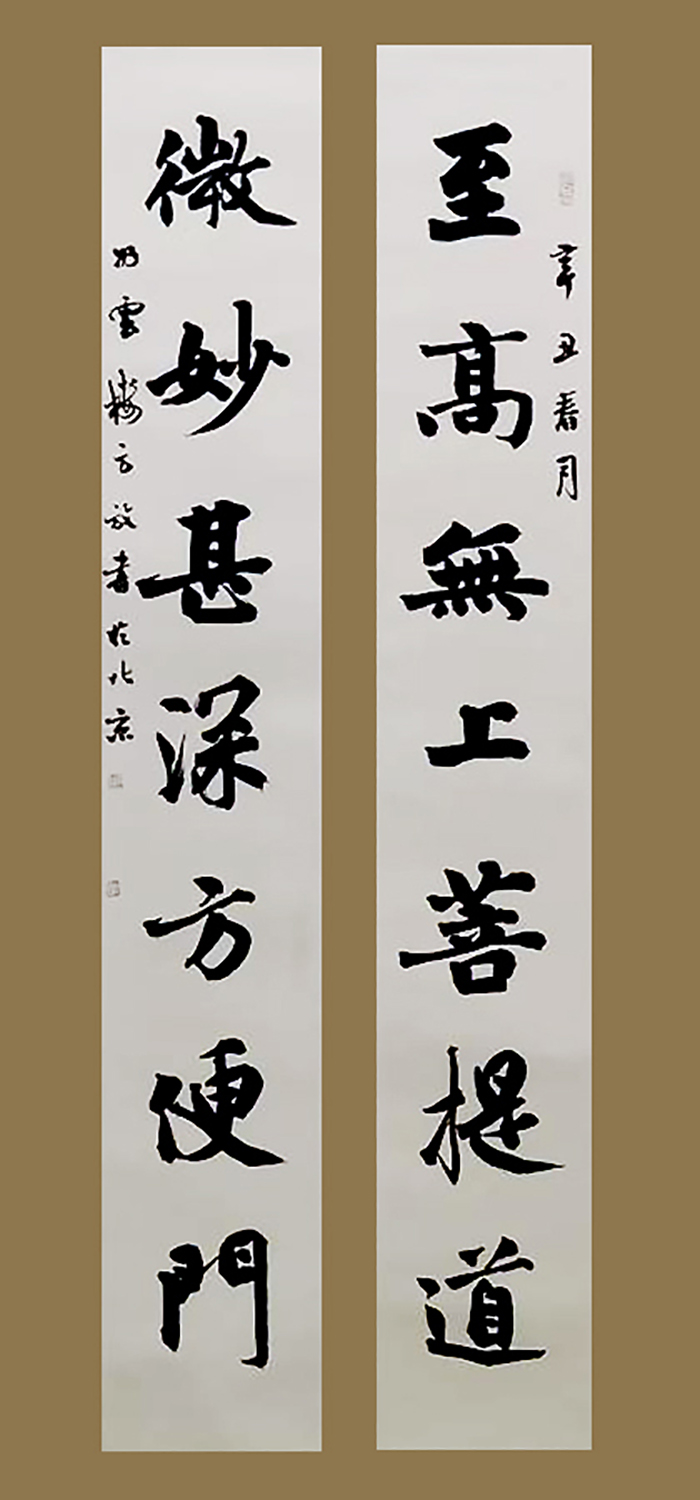 辛丑春月
至高無上菩提道
微妙甚深方便門
雲樓方放書於北京